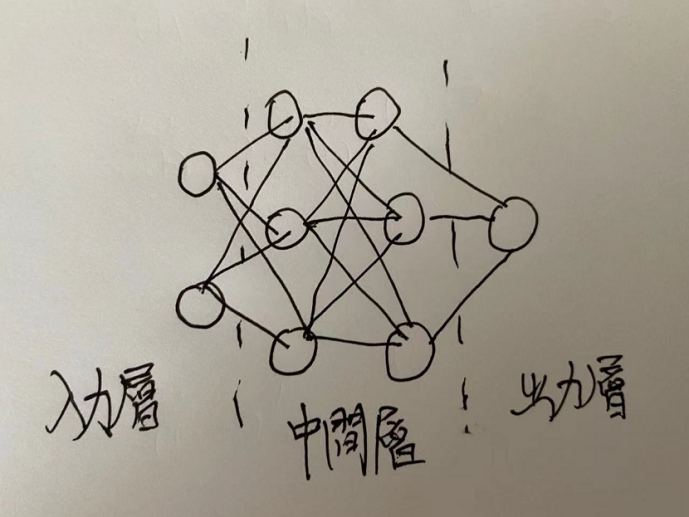 入力層
中間層
出力層